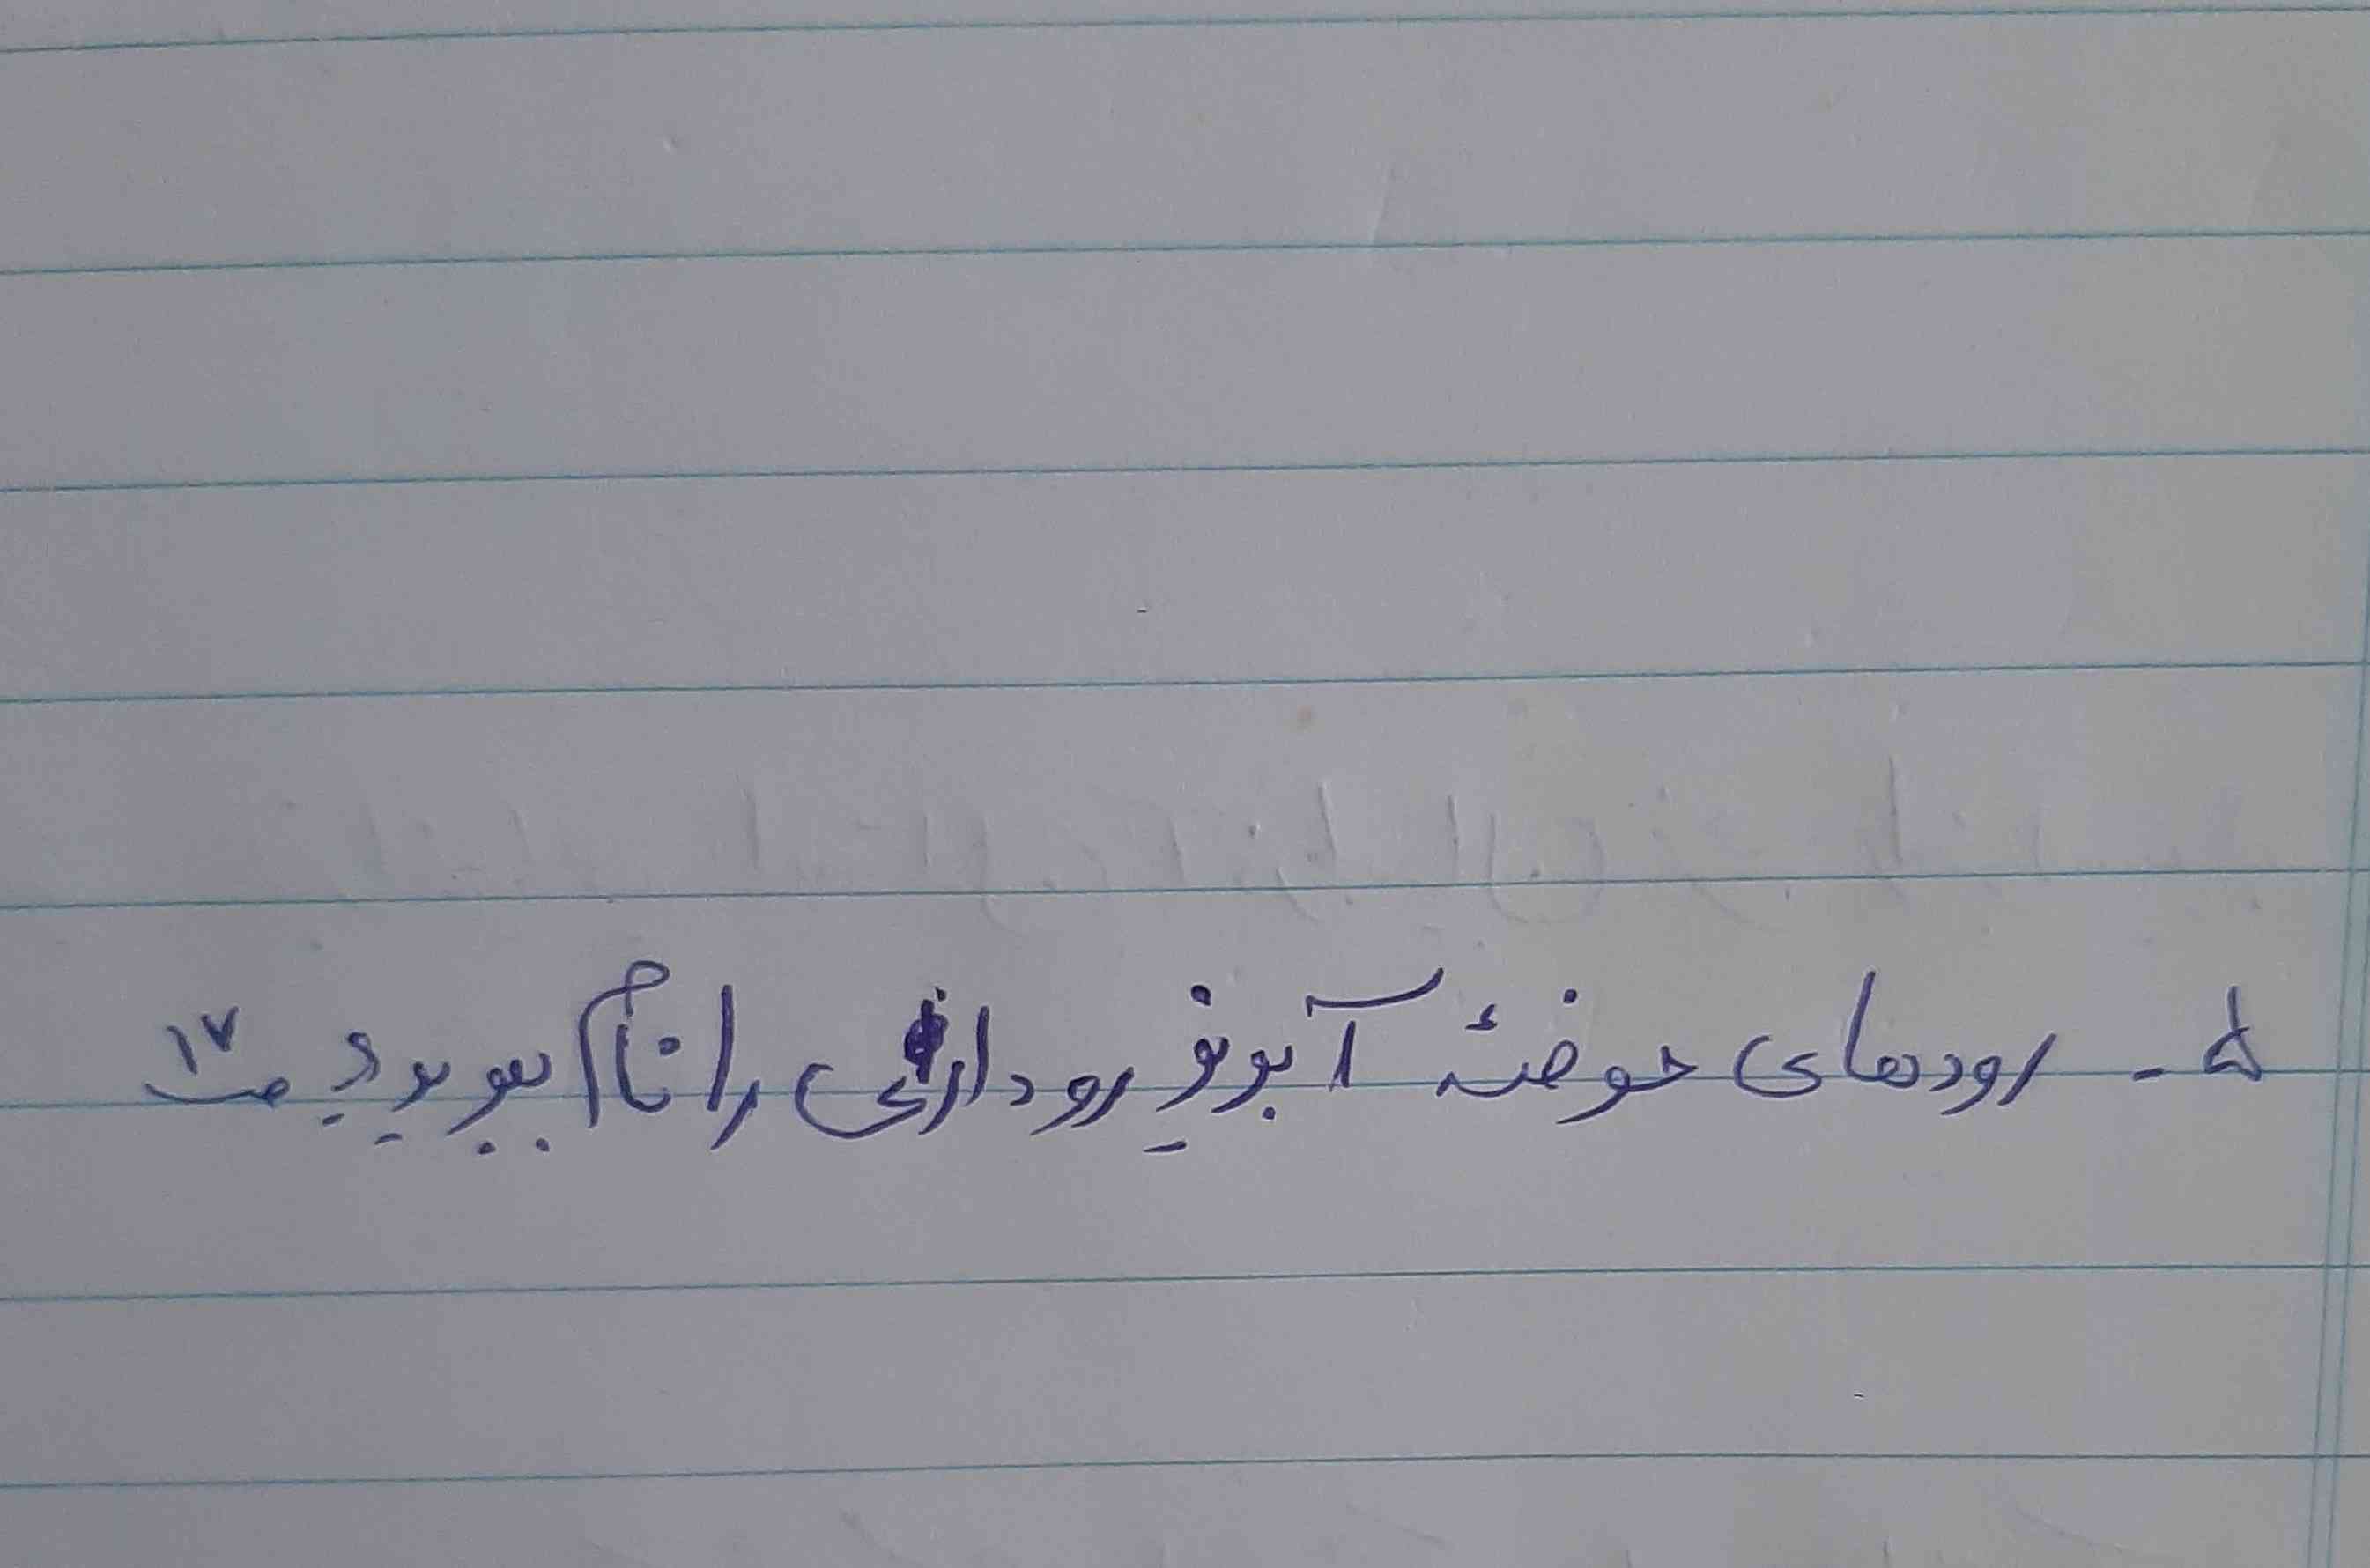 ۵- رودهای حوضهٔ آبریز رود ارس را نام ببرید ص ۱۷